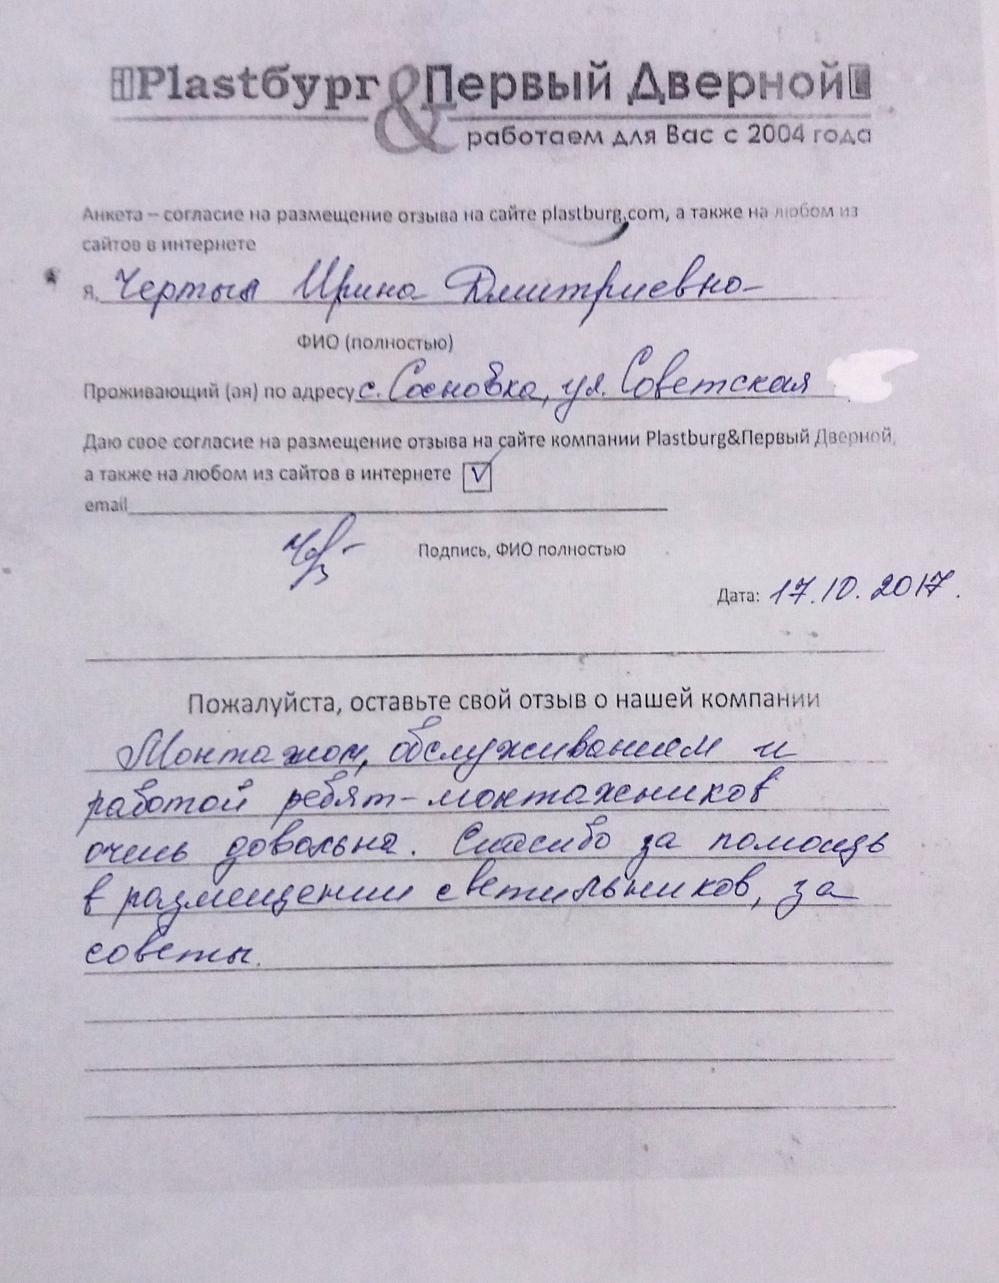 Plastбург & Первый Дверной
работаем для Вас с 2004 года
Анкета – согласие на размещение отзыва на сайте plastburg.com, а также на любом из
сайтов в интернете
Я, Ирина Дмитриевна
ФИО (полностью)
Проживающий (ая) по адресу с. Сосновка, ул. Советская
Даю свое согласие на размещение отзыва на сайте компании Plastburg&Первый Дверной,
а также на любом из сайтов в интернете V
email
Подпись, ФИО полностью
Дата: 17.10.2017.
Пожалуйста, оставьте свой отзыв о нашей компании
Монтажом, обслуживанием и
работой ребят-монтажников
очень довольна. Спасибо за помощь
в размещении светильников, за
советы.